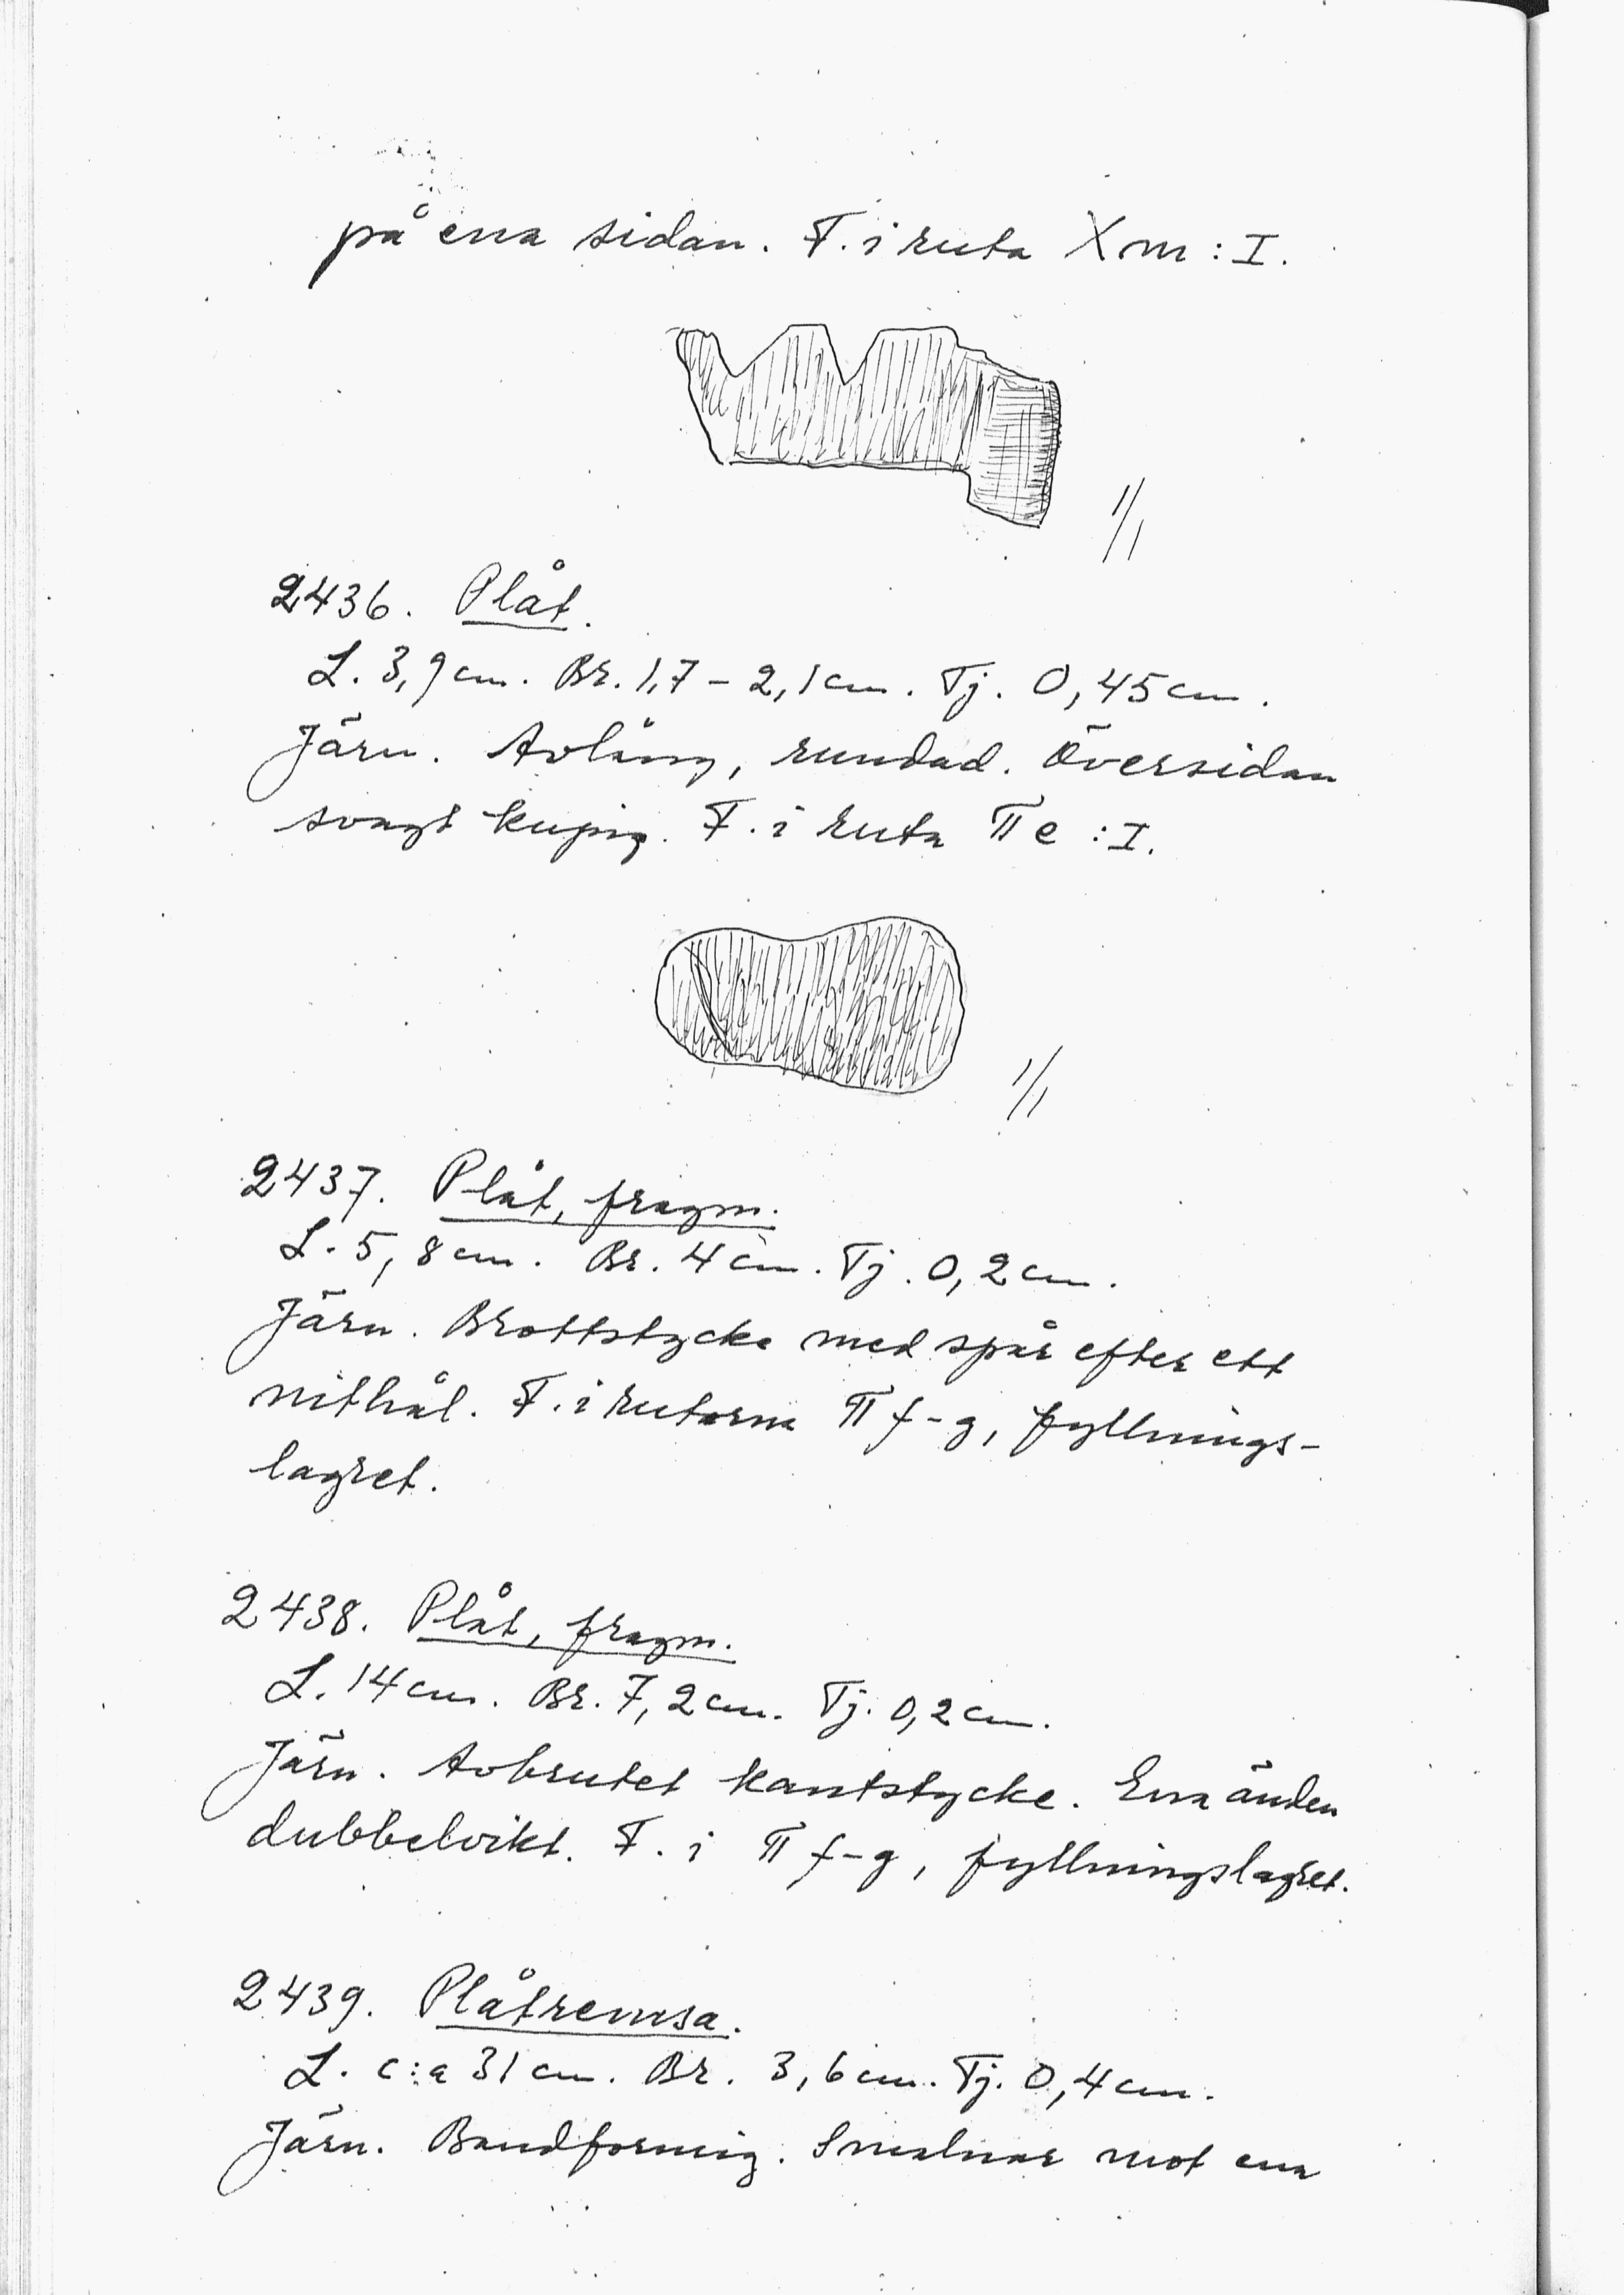 på ena sidan. F. i ruta X m : I.
1/1
2436. Plåt.
L. 3,9 cm. Br. 1,7 – 2,1 cm. Tj. 0,45 cm.
Järn. Avlång, rundad. Översidan
svagt kupig. F. i ruta II e : I.
1/1
2437. Plåt, fragm.
L. 5,8 cm. Br. 4 cm. Tj. 0,2 cm.
Järn. Brottstycke med spår efter ett
nithål. F. i rutorna II f-g, fyllnings-
lagret.
2438. Plåt, fragm.
L. 14 cm. Br. 7,2 cm. Tj. 0,2 cm.
Järn. Avbrutet kantstycke. Ena änden
dubbelvikt. F. i II f-g, fyllningslagret.
2439. Plåtremsa.
L. c:a 31 cm. Br. 3,6 cm. Tj. 0,4 cm.
Järn. Bandformig. Smalnar mot ena